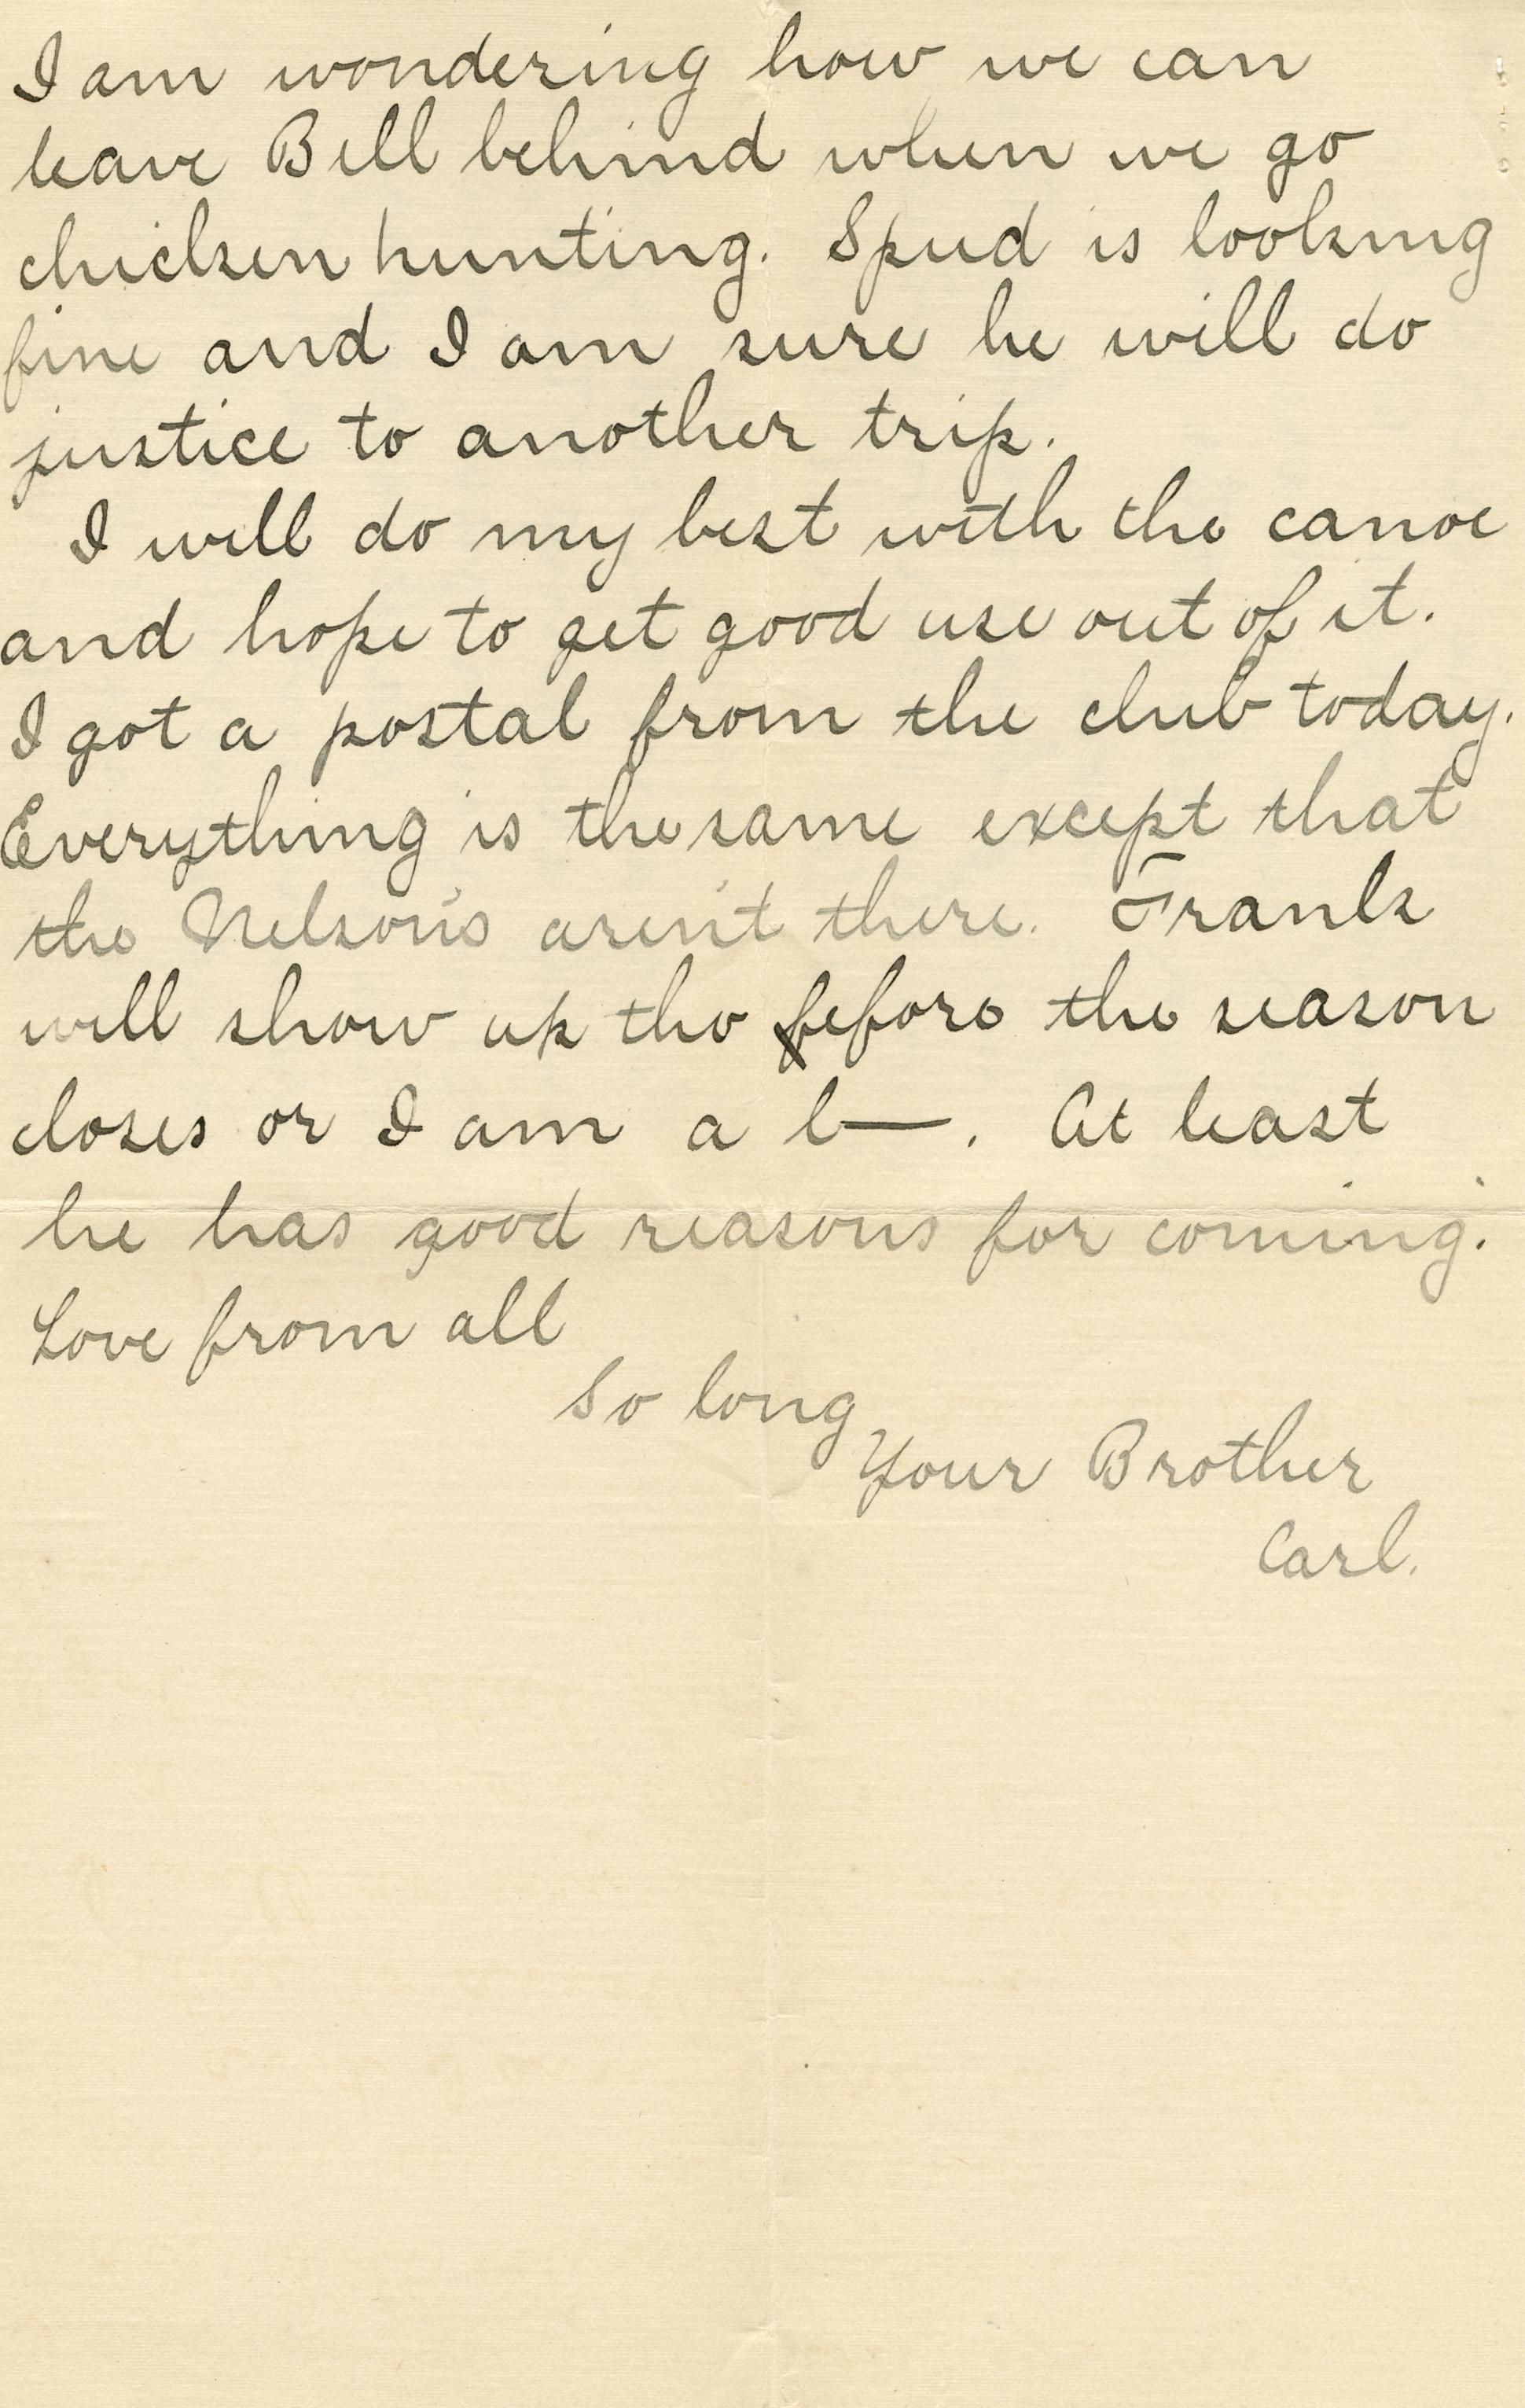 I am wondering how we can
leave Bill behind when we go
chicken hunting. Spud is looking
fine and I am sure he will do
justice to another trip.
I will do my best with the canoe
and hope to get good use out of it.
I got a postal from the club today.
Everything is the same except that
the Nelson's aren't there. Frank
will show up tho before the season
closes or I am a l—. At least
he has good reasons for coming.
Love from all
So long
Your Brother
Carl.